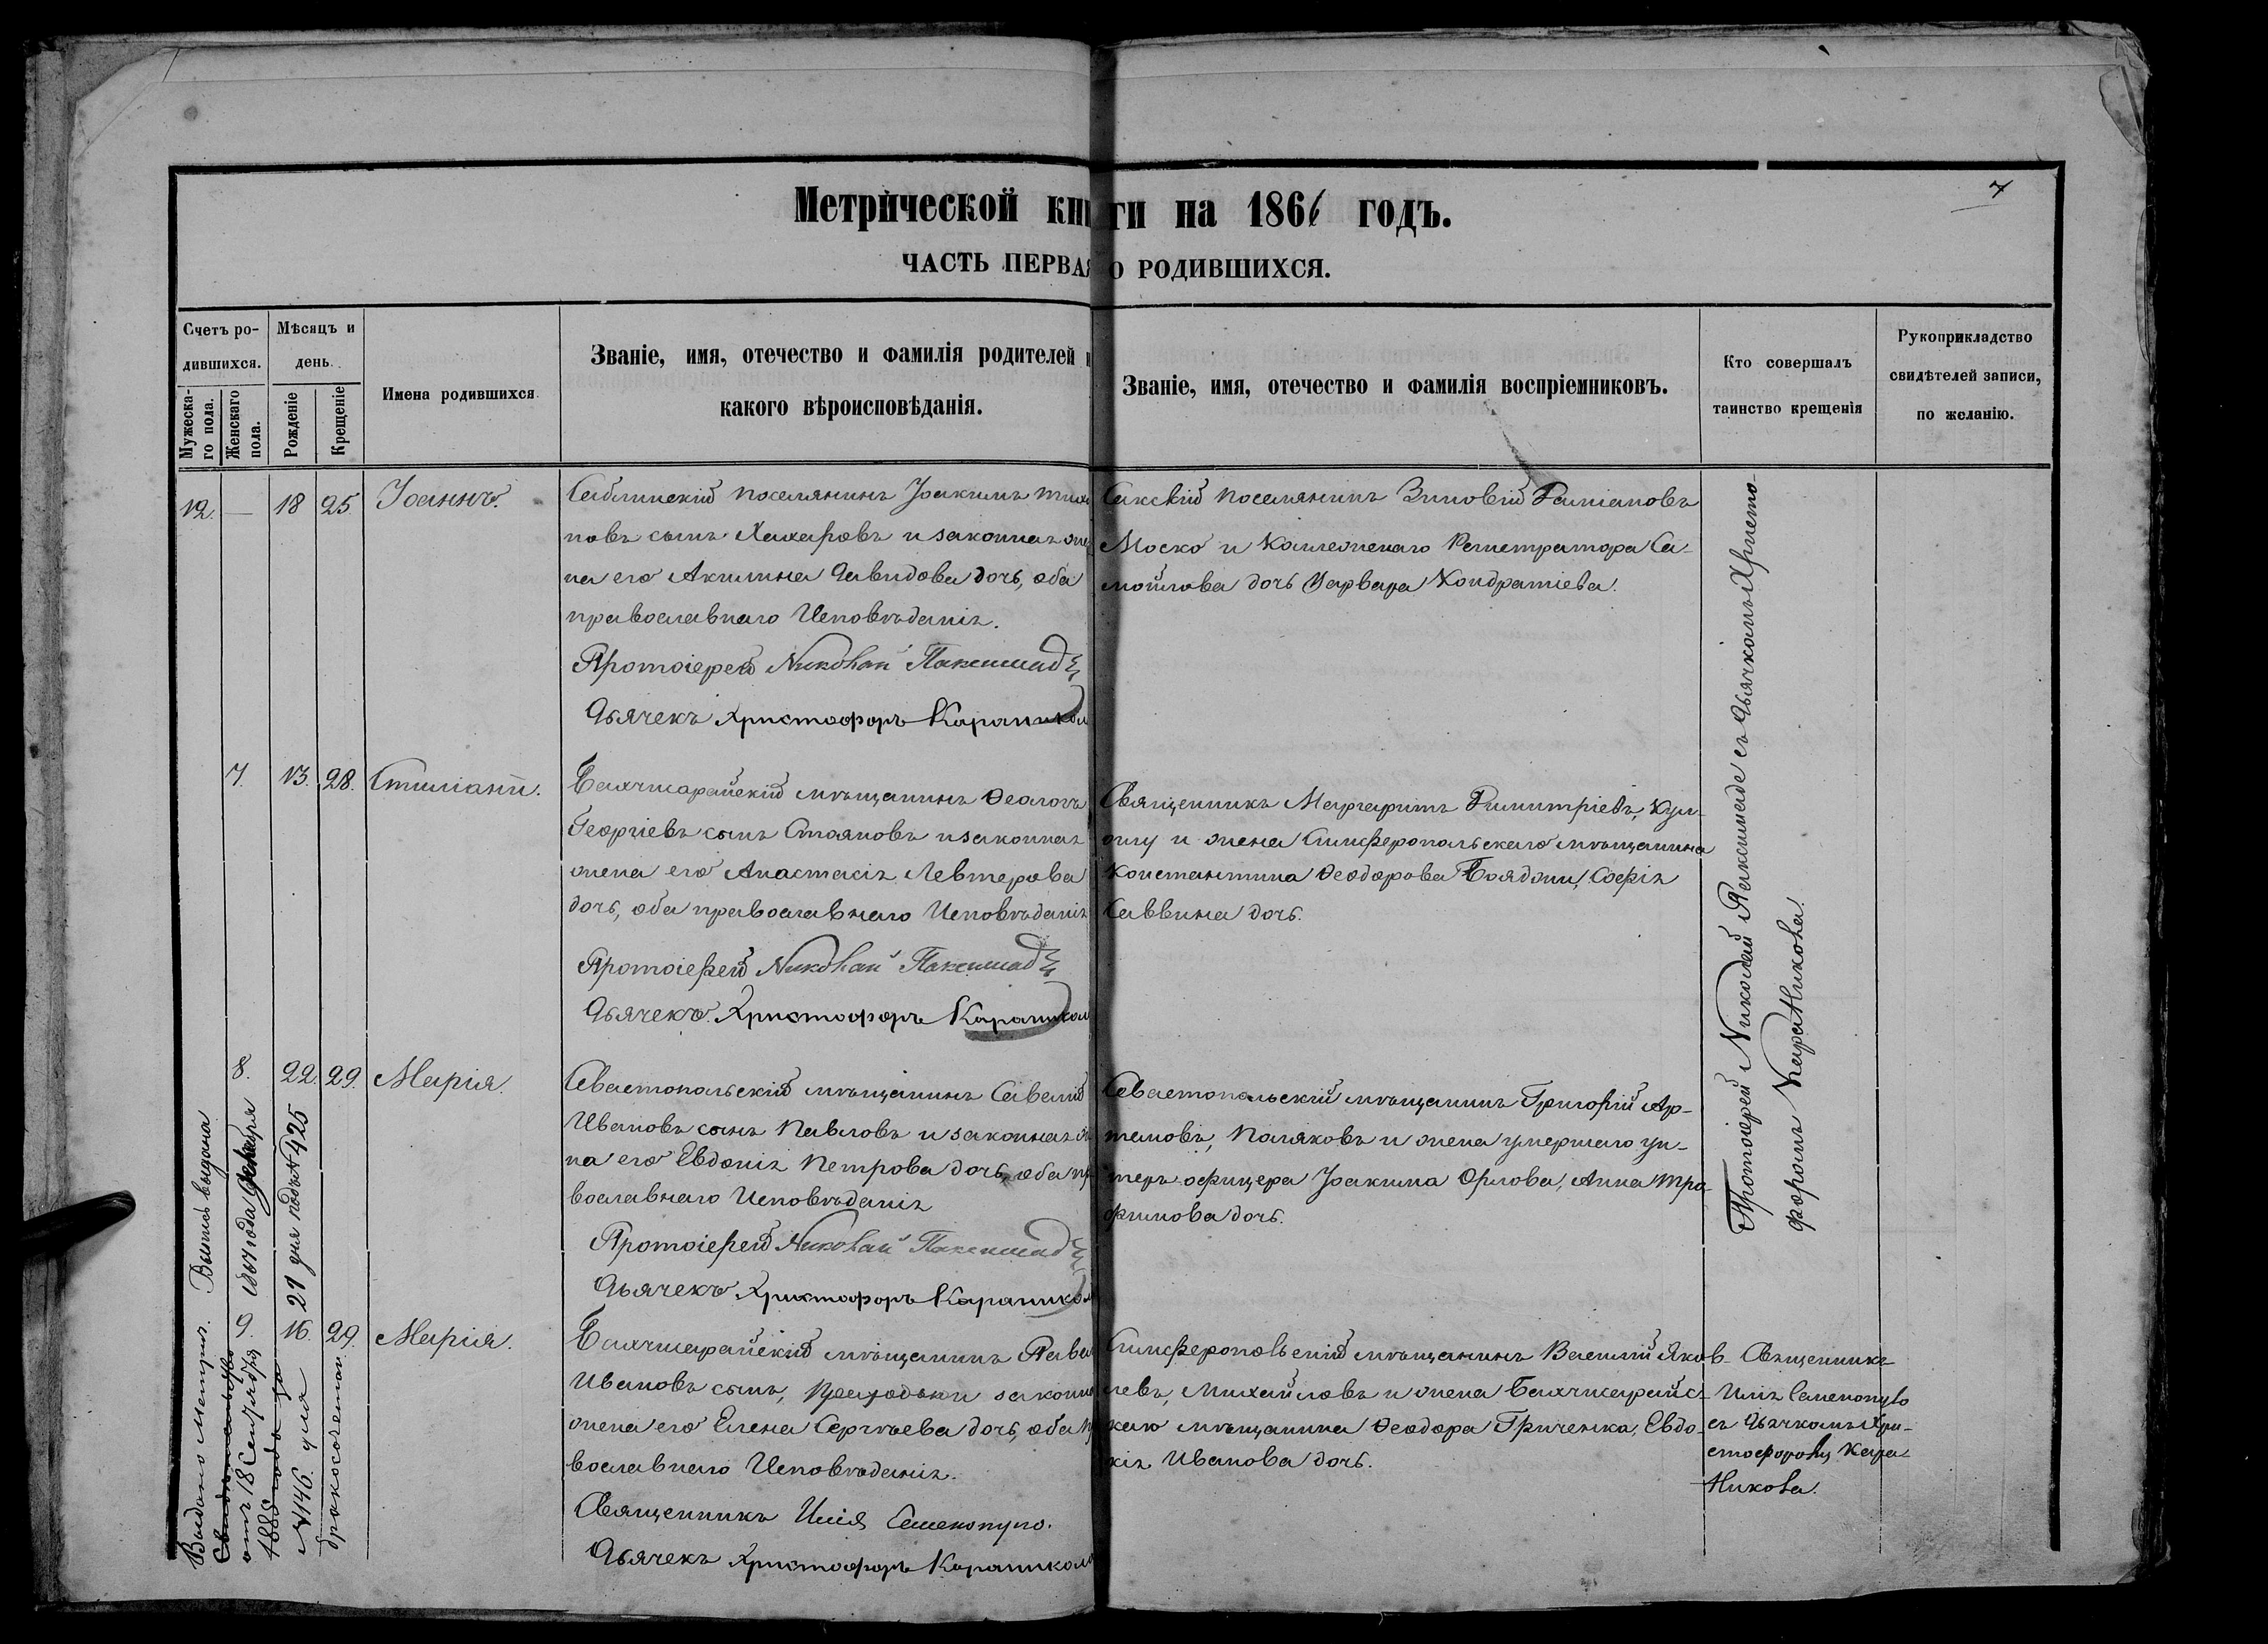 7
Метрической книги на 1866 годъ.
ЧАСТЬ ПЕРВАЯ О РОДИВШИХСЯ.
Счетъ ро-
дившихся.
Мужеска-
го пола.
Женскаго
пола.
Мѣсяцъ и
день.
Рожденіе
Крещеніе
Имена родившихся
Званіе, имя, отечество и фамилія родителей и
какого вѣроисповѣданія.
Званіе, имя, отечество и фамилія воспріемниковъ.
Кто совершалъ
таинство крещенія
Рукоприкладство
свидѣтелей записи,
по желанію.
12. — 18 25. Іоаннъ.
Саблинскій поселянинъ Іоакимъ
новъ сынъ Захаровъ и законная же
на его Акилина Давидова дочь, оба
православнаго Исповѣданія.
Протоіерей Николай Паксимадѣ
Дьячекъ Христофоръ Караникол
Сакскій поселянинъ Зиновій Даміановъ
Моско и Коллежскаго Регистратора Са-
мойлова дочь Варвара Кондратіева.
7. 13. 28. Стиліани.
Бахчисарайскій мѣщанинъ Ѳеологъ
Георгіевъ сынъ Стояновъ и законная
жена его Анастасія Левтерова
дочь, оба православнаго Исповѣданія
Протоіерей Николай Паксимадѣ
Дьячекъ Христофоръ Караникол
Священникъ Маргаритъ Димитріевъ,
и жена Симферопольскаго мѣщанина
Константина Ѳеодорова Бояджи, Софія
Саввина дочь.
8. 22. 29. Марія.
Севастопольскій мѣщанинъ Савелій
Ивановъ сынъ Павловъ и законная же
на его Евдокія Петрова дочь, оба пра
вославнаго Исповѣданія
Протоіерей Николай Паксимадѣ
Дьячекъ Христофоръ Караникол
Севастопольскій мѣщанинъ Григорій Ар-
темовъ, Поляковъ и жена умершаго ун-
теръ-офицера Іоакима Орлова, Анна Тро-
фимова дочь.
Протоіерей Николай Паксимаде съ Дьячкомъ Христо-
форомъ КараНикола.
9. 16. 29. Марія.
Бахчисарайскій мѣщанинъ Паве
Ивановъ сынъ, и законна
жена его Елена Сергѣева дочь, оба пра
вославнаго Исповѣданія.
Священникъ Илія Семенопуло.
Дьячекъ Христофоръ Караникол
Симферопольскій мѣщанинъ Василій Яков-
левъ, Михайловъ и жена Бахчисарайс-
каго мѣщанина Ѳеодора Гриченка, Евдо-
кія Иванова дочь.
Священникъ
Илія Семенопуло
съ Дьячкомъ Хри-
стофоромъ Кара-
Никола.
Выдано Метрич.
Свидѣтельство
отъ 18 Сентября
1888 года за
№ 146. для
бракосочетан.
Выпись выдана
1867 года Декабря
21 дня подъ № 425